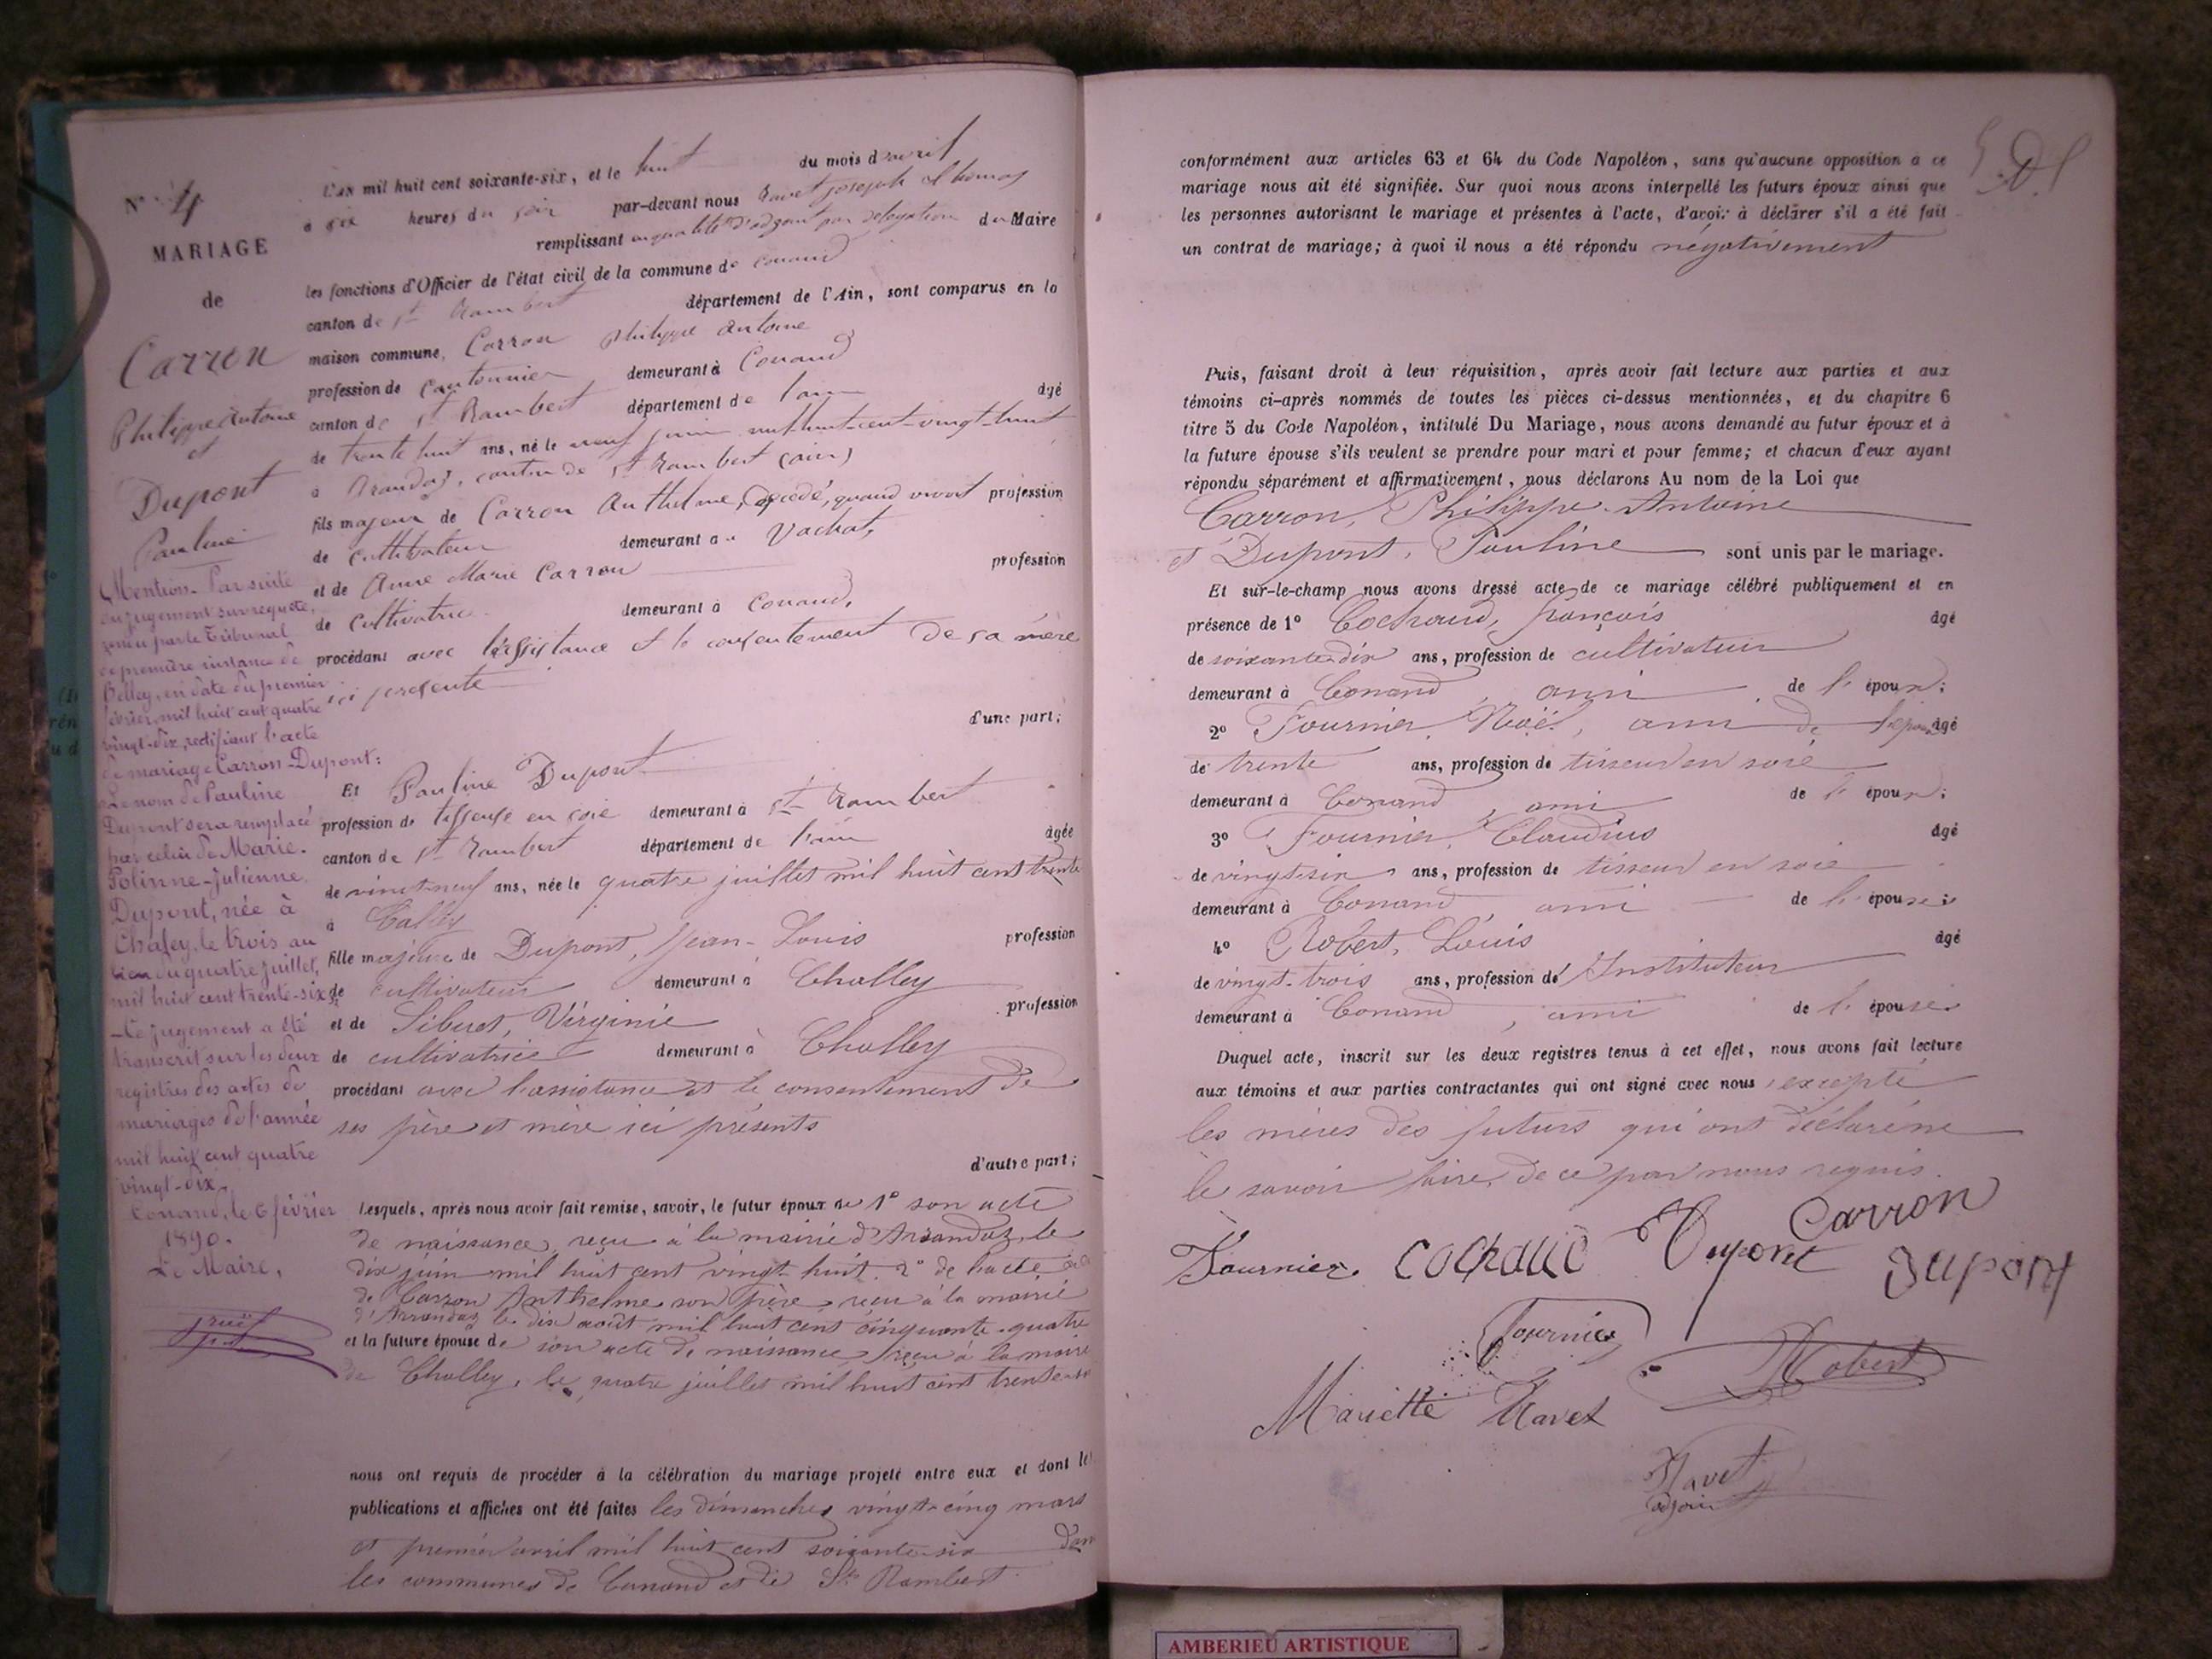 N° 4
MARIAGE
de
Carron
Philippe Antoine
et
Dupont
Pauline
Mention. Par suite
du jugement sur requête,
rendu par le Tribunal
de première instance de
Belley, en date du premier
février mil huit cent quatre
vingt-dix, rectifiant l'acte
de mariage Carron-Dupont:
Le nom de Pauline
Dupont sera remplacé
par celui de Marie-
Polinne-Julienne
Dupont, née à
Chaley, le trois au
lieu du quatre juillet,
mil huit cent trente-six
Le jugement a été
transcrit sur les deux
registres des actes de
mariages de l'année
mil huit cent quatre
vingt-dix.
Conand, le 6 février
1890.
Le Maire,
L'AN mil huit cent soixante-six, et le huit du mois d'avril
à six heures du soir par-devant nous Ravet joseph thomas
remplissant en qualité d'adjoint par délégation du Maire
les fonctions d'Officier de l'état civil de la commune de Conand
canton de St Rambert département de l'Ain, sont comparus en la
maison commune, Carron Philippe Antoine
profession de Cantonnier demeurant à Conand
canton de St Rambert département de l'ain âgé
de trente huit ans, né le neuf juin mil-huit-cent-vingt-huit
à Arandas, canton de St Rambert (ain)
fils majeur de Carron Anthelme, décédé, quand vivait profession
de cultivateur demeurant au Vachat,
et de Anne Marie Carron profession
de Cultivatrice demeurant à Conand,
procédant avec l'assistance et le consentement de sa mère
ici présente
d'une part;
Et Pauline Dupont
profession de tisseuse en soie demeurant à St Rambert
canton de St Rambert département de l'ain âgée
de vingt-neuf ans, née le quatre juillet mil huit cent trente
à Calley
fille majeure de Dupont, Jean-Louis profession
de cultivateur demeurant à Challey
et de Siberet, Virginie profession
de cultivatrice demeurant à Challey
procédant avec l'assistance et le consentement de
ses père et mère ici présents
d'autre part;
Lesquels, après nous avoir fait remise, savoir, le futur époux de 1° son acte
de naissance, reçu à la mairie d'Arandaz, le
dix juin mil huit cent vingt-huit. 2° de l'acte
de Carron Anthelme son père, reçu à la mairie
d'Arrandaz le dix août mil huit cent cinquante-quatre
et la future épouse de son acte de naissance, reçu à la mairie
de Challey, le quatre juillet mil huit cent trente-six
nous ont requis de procéder à la célébration du mariage projeté entre eux et dont les
publications et affiches ont été faites les dimanches vingt-cinq mars
et premier avril mil huit cent soixante-six dans
les communes de Conand et de St Rambert.
conformément aux articles 63 et 64 du Code Napoléon, sans qu'aucune opposition à ce
mariage nous ait été signifiée. Sur quoi nous avons interpellé les futurs époux ainsi que
les personnes autorisant le mariage et présentes à l'acte, d'avoir à déclarer s'il a été fait
un contrat de mariage; à quoi il nous a été répondu négativement
Puis, faisant droit à leur réquisition, après avoir fait lecture aux parties et aux
témoins ci-après nommés de toutes les pièces ci-dessus mentionnées, et du chapitre 6
titre 5 du Code Napoléon, intitulé Du Mariage, nous avons demandé au futur époux et à
la future épouse s'ils veulent se prendre pour mari et pour femme; et chacun d'eux ayant
répondu séparément et affirmativement, nous déclarons Au nom de la Loi que
Carron, Philippe-Antoine
et Dupont, Pauline sont unis par le mariage.
Et sur-le-champ nous avons dressé acte de ce mariage célébré publiquement et en
présence de 1° Cochaud, françois âgé
de soixante-dix ans, profession de cultivateur
demeurant à Conand, ami de l'époux;
2° Fournier, Noël, ami de l'époux âgé
de trente ans, profession de tisseur en soie
demeurant à Conand, ami de l'époux;
3° Fournier, Claudius âgé
de vingt-six ans, profession de tisseur en soie
demeurant à Conand, ami de l'épouse;
4° Robert, Louis âgé
de vingt-trois ans, profession de Instituteur
demeurant à Conand, ami de l'épouse
Duquel acte, inscrit sur les deux registres tenus à cet effet, nous avons fait lecture
aux témoins et aux parties contractantes qui ont signé avec nous, excepté
les mères des futurs qui ont déclaré ne
le savoir faire, de ce par nous requis.
Carron
Fournier Cochaud Dupont Dupont
Fournier Robert
Mariette Ravet
Ravet
adjoint
AMBERIEU ARTISTIQUE